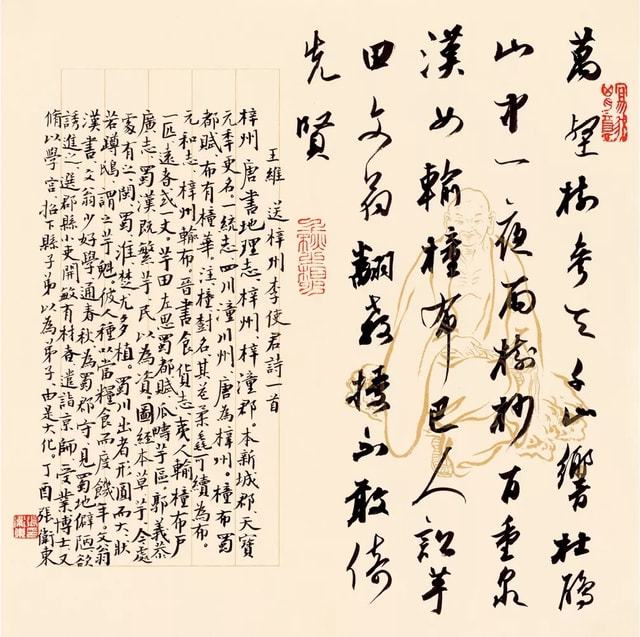 萬壑樹參天千山響杜鵑
山中一夜雨樹杪百重泉
漢女輸橦布巴人訟芋
田文翁翻教授不敢倚
先賢
王維 送梓州李使君詩一首
梓州。唐書地理志。梓州梓潼郡。本新城郡。天寶
元年更名。一統志。四川潼川州。唐為梓州。橦布。蜀
都賦。布有橦華。注。橦樹名。其花柔毳可績為布。
元和志。梓州輸布。晉書食貨志。夷人輸橦布戶
一匹。遠者或一丈。芋田。左思蜀都賦。瓜疇芋區。郭義恭
廣志。蜀漢既繁芋。民以為資。圖經本草。芋。今處
處有之。閩蜀淮楚尤多植。蜀川出者。形圓而大。狀
若蹲鴟。謂之芋魁。彼人種以當糧食而度饑年。文翁
漢書。文翁少好學。通春秋。為蜀郡守。見蜀地僻陋。欲
誘進之。選郡縣小吏開敏有材者。遣詣京師。受業博士。又
脩以學宮。招下縣子弟以為弟子。由是大化。丁酉張衛東